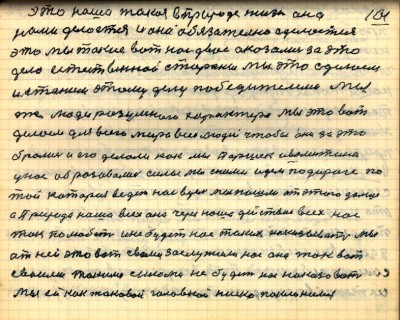 это наша такая в природе жизнь она
нами делается и она обязательно сделается
это мы такие вот нас двое сказали за это
дело естественной стороны мы это сделаем
и станем этому делу победителями мы
же люди разумного характера мы это вот
делаем для всего мира всех людей чтобы они за это
брались и его делали как мы Паршек и Валентина
у нас образовались силы мы с ними идем по дороге по
той которая ведет нас всех мы пошли от этого дальше
а Природа наша всех она через наше действие всех нас
так полюбит и не будет нас таких наказывать мы
от ней это вот своим заслужили нас она так вот
своими такими силами не будет нас наказывать
мы ей как таковой головкой низко поклонились